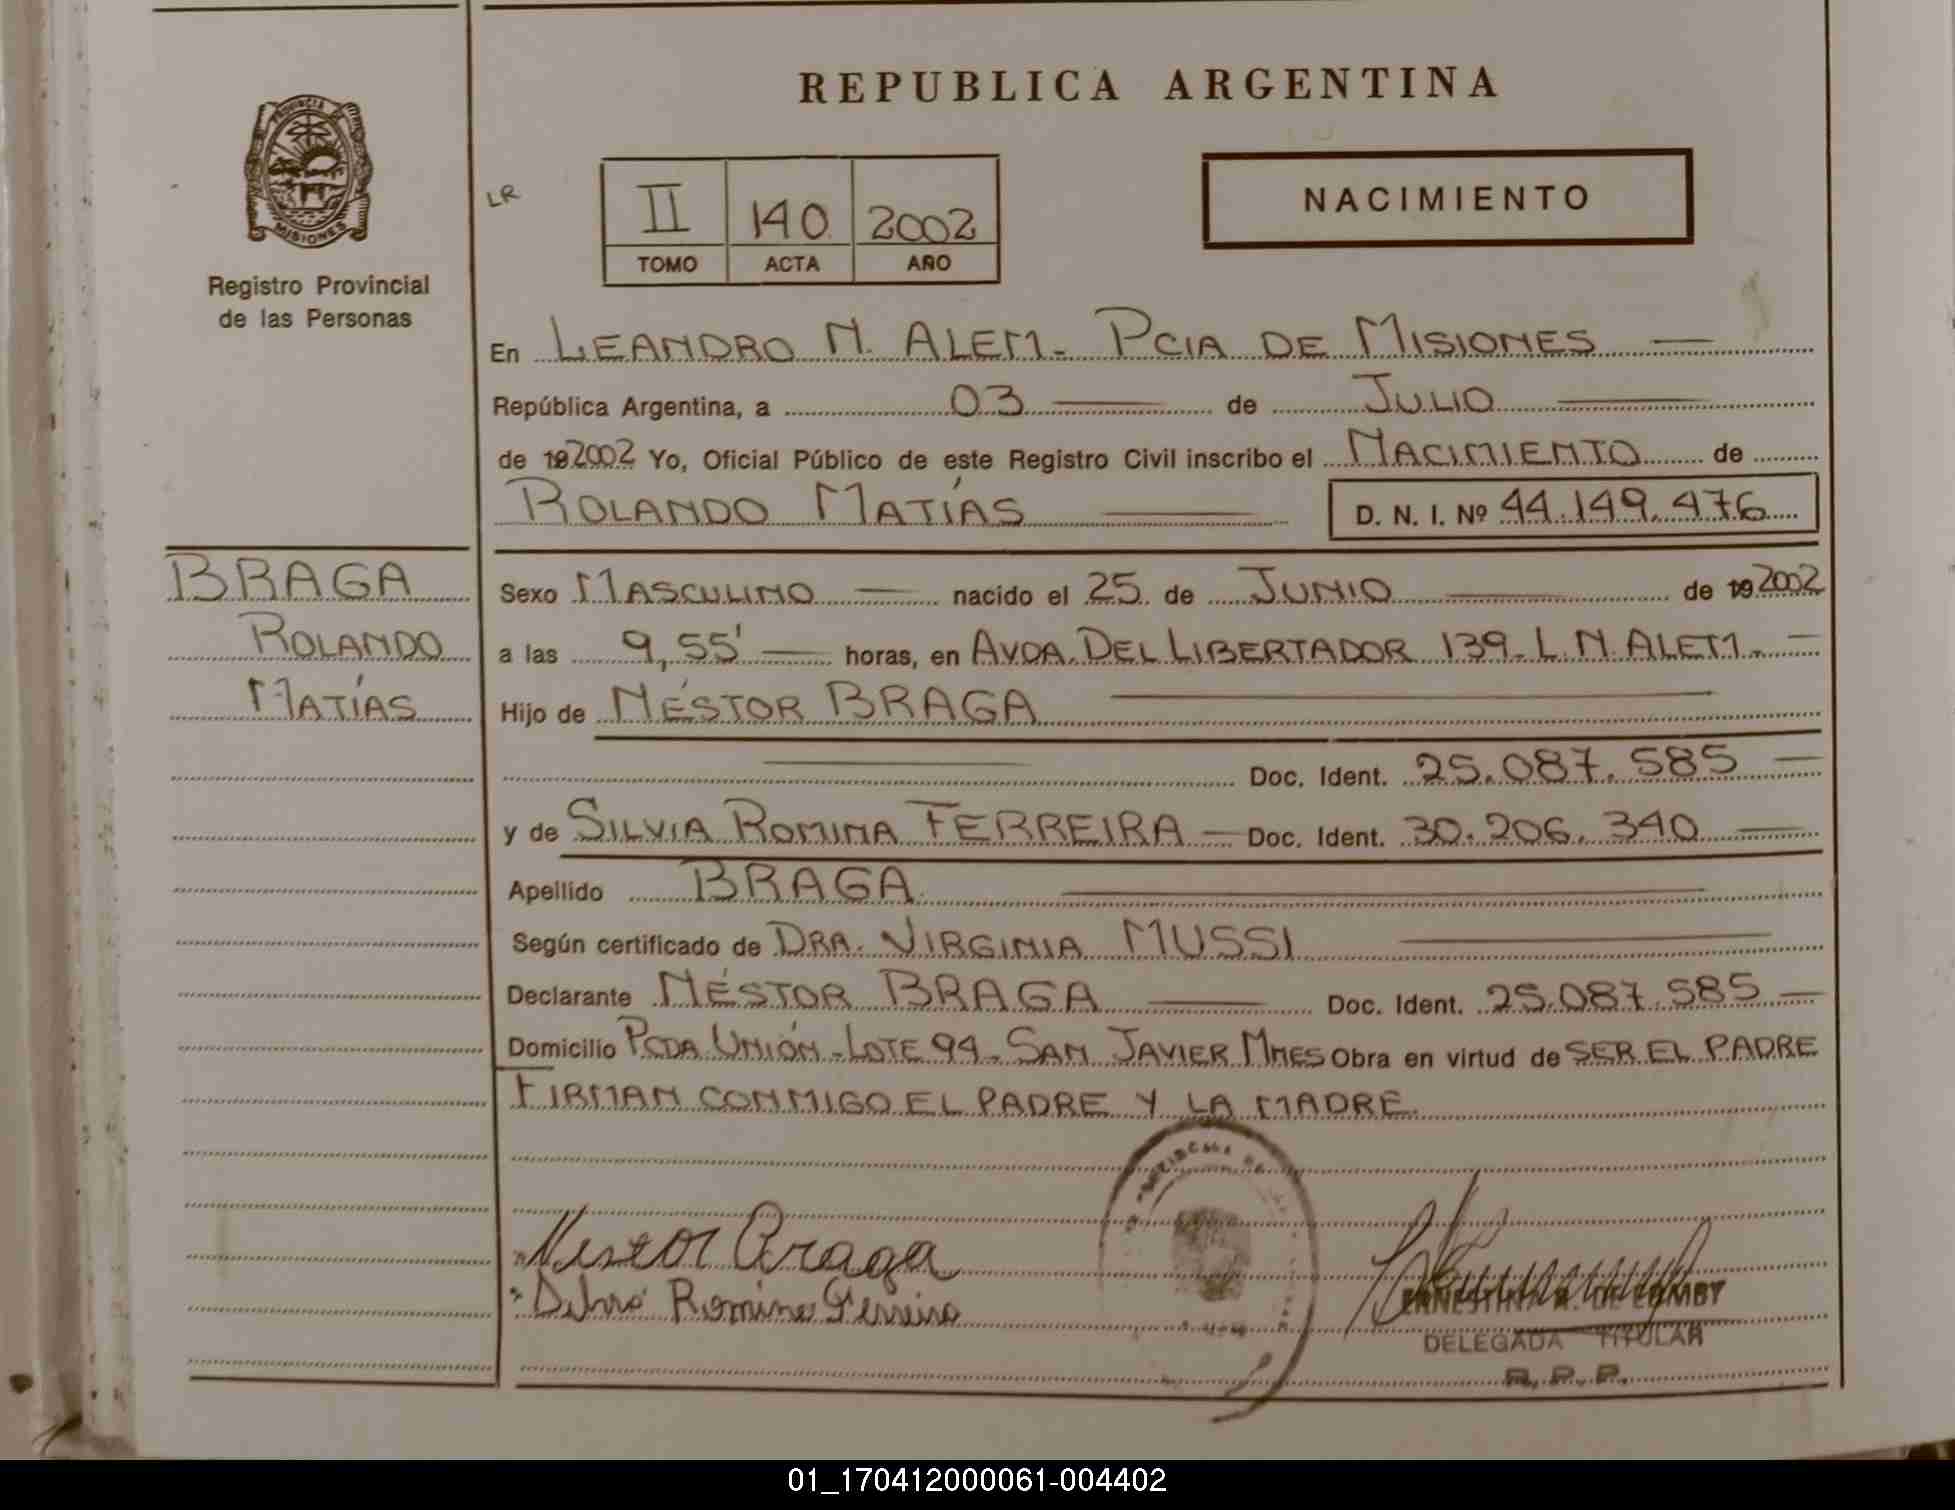 REPUBLICA ARGENTINA
PROVINCIA DE
MISIONES
Registro Provincial
de las Personas
LR
II 140 2002
TOMO ACTA AÑO
NACIMIENTO
En LEANDRO N. ALEM - PCIA DE MISIONES
República Argentina, a 03 de JULIO
de 192002 Yo, Oficial Público de este Registro Civil inscribo el NACIMIENTO de
ROLANDO MATÍAS D. N. I. Nº 44.149.476
BRAGA
ROLANDO
MATÍAS
Sexo MASCULINO nacido el 25 de JUNIO de 192002
a las 9,55' horas, en AVDA. DEL LIBERTADOR 139 - L. N. ALEM.-
Hijo de NÉSTOR BRAGA
Doc. Ident. 25.087.585
y de SILVIA ROMINA FERREIRA Doc. Ident. 30.206.340
Apellido BRAGA
Según certificado de DRA. VIRGINIA MUSSI
Declarante NÉSTOR BRAGA Doc. Ident. 25.087.585
Domicilio PCDA UNIÓN - LOTE 94 - SAN JAVIER MNES Obra en virtud de SER EL PADRE
FIRMAN CONMIGO EL PADRE Y LA MADRE.
Nestor Braga
Romina Ferreira
DELEGADA TITULAR
R. P. P.
01_170412000061-004402